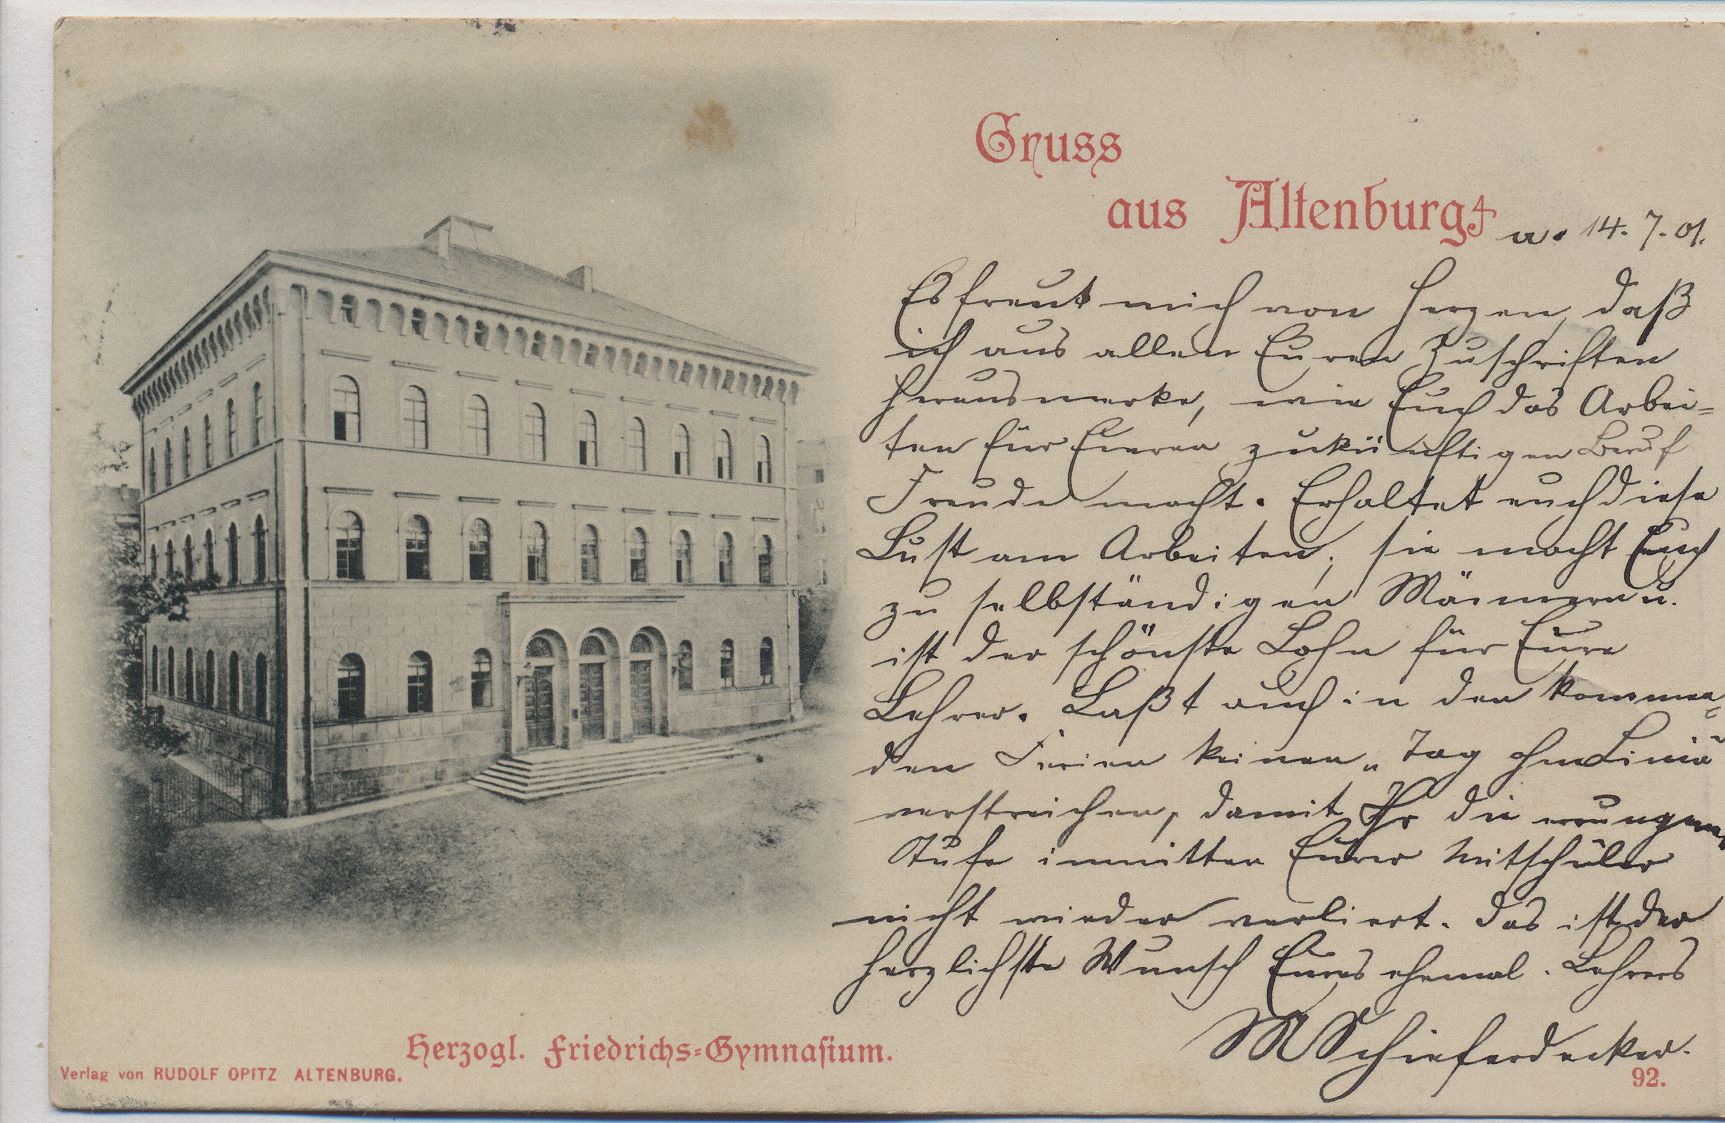 Gruss
aus Altenburg
d. 14. 7. 01.
Es freut mich von Herzen, daß
ich aus allen Euren Zuschriften
herausmerke, wie Euch das Arbei=
ten für Eueren zukünftigen Beruf
Freude macht. Erhaltet euch diese
Lust am Arbeiten; sie macht Euch
zu selbständigen Männern u.
ist der schönste Lohn für Eure
Lehrer. Laßt auch in den kommen=
den Ferien keinen „Tag ohne Linie"
verstreichen, damit Ihr die errungene
Stufe inmitten Eurer Mitschüler
nicht wieder verliert. Das ist der
herzlichste Wunsch Eures ehemal. Lehrers
M Schieferdecker.
Herzogl. Friedrichs=Gymnasium.
Verlag von RUDOLF OPITZ ALTENBURG.
92.